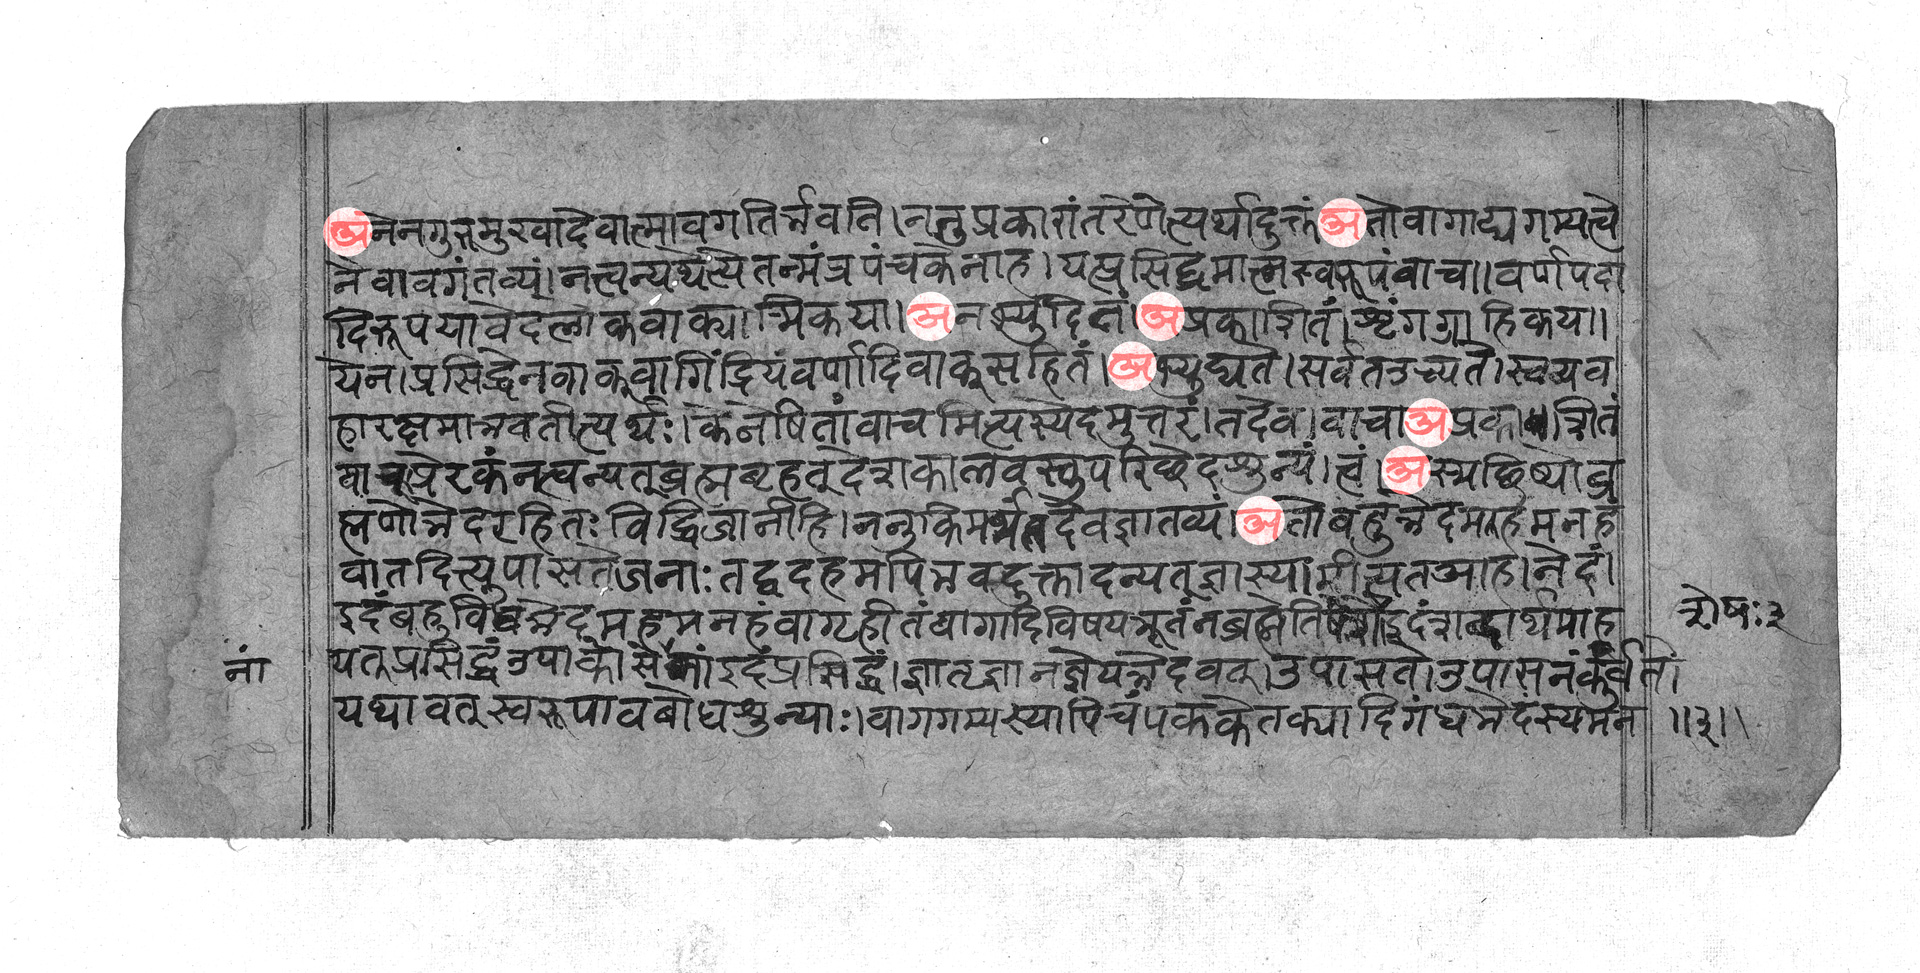 अनेनगुरुमुखादेवात्मावगतिर्भवति।ननुप्रकारांतरेणेत्यर्थादुक्तंअतोवागाद्यगम्यत्वे
नैवावगंतव्यं।नत्त्वन्यथेत्येतन्मंत्रपंचकेनाह।यत्प्रसिद्धमात्मस्वरूपंवाचा।वर्णपदा
दिरूपयावेदलोकवाक्यात्मिकया।अनभ्युदितं।अप्रकाशितं।शृंगग्राहिकया।
येन।प्रसिद्धेनवाक्वागिंद्रियंवर्णादिवाक्सहितं।अभ्युद्यते।सर्वतउच्यते।स्वव्यव
हारक्षमाभवतीत्यर्थः।केनेषितांवाचमित्यस्येदमुत्तरं।तदेव।वाचाअप्रकाशितं
वाक्प्रेरकंनत्वन्यत्ब्रह्मबृहत्देशकालवस्तुपरिछेदशुन्यं।त्वं।अस्मछिष्योब्र
ह्मणोभेदरहितः विद्धिजानीहि।ननुकिमर्थतदेवज्ञातव्यं।अतोबहुभेदमहमनहं
वातदित्युपासतेजनाः तद्वदहमपिभवदुक्तादन्यत्ज्ञास्यामीत्यतआह।नेदं।
इदंबहुविधभेदमहमनहंवागृहीतंवागादिविषयभूतंनब्रह्मेतिइदंशब्दार्थमाह
यत्प्रसिद्धंउपाकोसेइदंप्रसिद्धं।ज्ञातृज्ञानज्ञेयभेदवत्।उपासते।उपासनंकुर्वंति।
यथावत्स्वरूपावबोधशुन्याः।वागगम्यस्यापिचंपककेतक्यादिगंधभेदस्यमन ॥३॥
शेषः३
नां